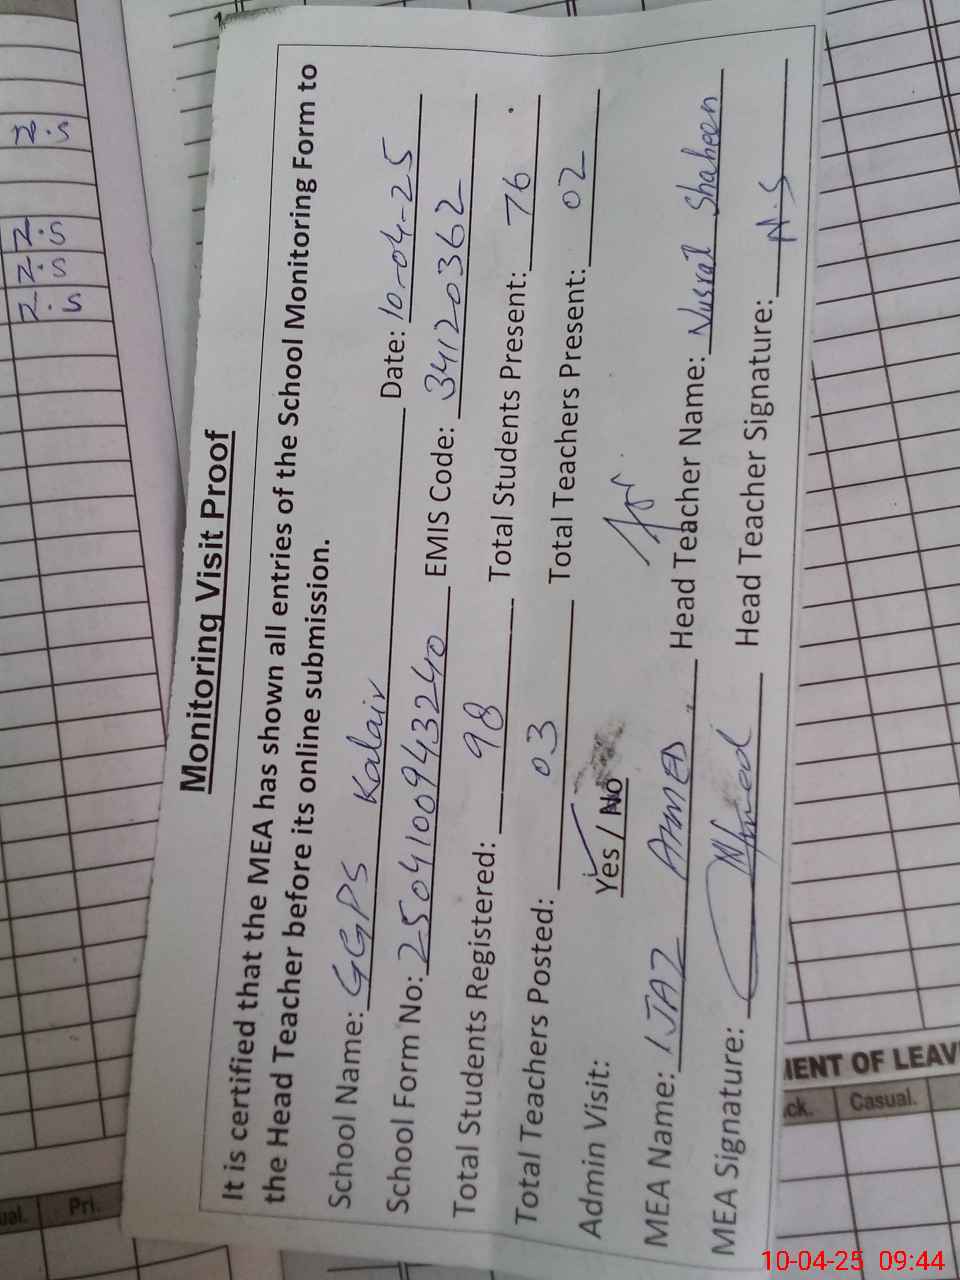 Monitoring Visit Proof
It is certified that the MEA has shown all entries of the School Monitoring Form to
the Head Teacher before its online submission.
School Name: GGPS Kalair Date: 10-04-25
School Form No: 2504100943240 EMIS Code: 34120362
Total Students Registered: 98 Total Students Present: 76
Total Teachers Posted: 03 Total Teachers Present: 02
Admin Visit: Yes / No
MEA Name: IJAZ AHMED Head Teacher Name: Nusrat Shaheen
MEA Signature: Ahmed Head Teacher Signature: N.S
MENT OF LEAV
ck. Casual.
ual. Pri.
N.S
N.S
N.S
N.S
10-04-25 09:44